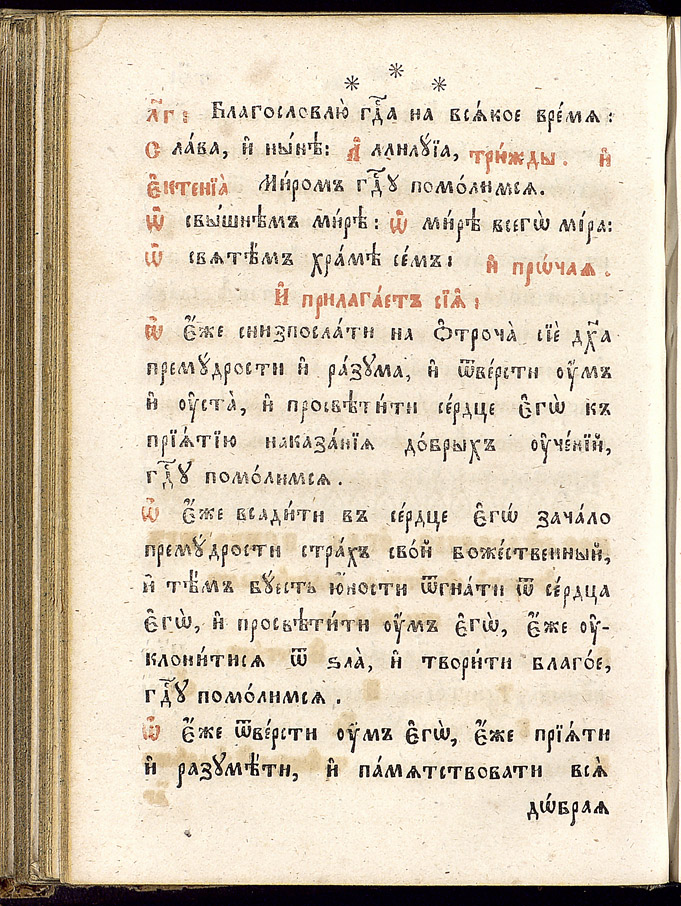 * * *
л҃г: Благословлю̀ гдⷭ҇а на всѧ́кое вре́мѧ:
Сла́ва, и҆ ны́нѣ: А҆ллилꙋ́їа, три́жды. И҆
є҆ктенїѧ̀ Ми́ромъ гдⷭ҇ꙋ помо́лимсѧ.
Ѡ҆ свы́шнѣмъ ми́рѣ: Ѡ҆ ми́рѣ всегѡ̀ мі́ра:
Ѡ҆ свѧтѣ́мъ хра́мѣ се́мъ: И҆ прѡ́чаѧ.
И҆ прилага́етъ сїѧ̑:
Ѡ҆ є҆́же снизпосла́ти на ѻ҆троча̀ сїѐ дх҃а
премꙋ́дрости и҆ ра́зꙋма, и҆ ѿве́рсти ᲂу҆́мъ
и҆ ᲂу҆ста̀, и҆ просвѣти́ти се́рдце є҆гѡ̀ къ
прїѧ́тїю наказа́нїѧ до́брыхъ ᲂу҆че́нїй,
гдⷭ҇ꙋ помо́лимсѧ.
Ѡ҆ є҆́же всади́ти въ се́рдце є҆гѡ̀ зача́ло
премꙋ́дрости стра́хъ сво́й боже́ственный,
и҆ тѣ́мъ бꙋ́есть ю҆́ности ѿгна́ти ѿ се́рдца
є҆гѡ̀, и҆ просвѣти́ти ᲂу҆́мъ є҆гѡ̀, є҆́же ᲂу҆-
клони́тисѧ ѿ ѕла̀, и҆ твори́ти благо́е,
гдⷭ҇ꙋ помо́лимсѧ.
Ѡ҆ є҆́же ѿве́рсти ᲂу҆́мъ є҆гѡ̀, є҆́же прїѧ́ти
и҆ разꙋмѣ́ти, и҆ па́мѧтствовати всѧ̑
дѡ́браѧ